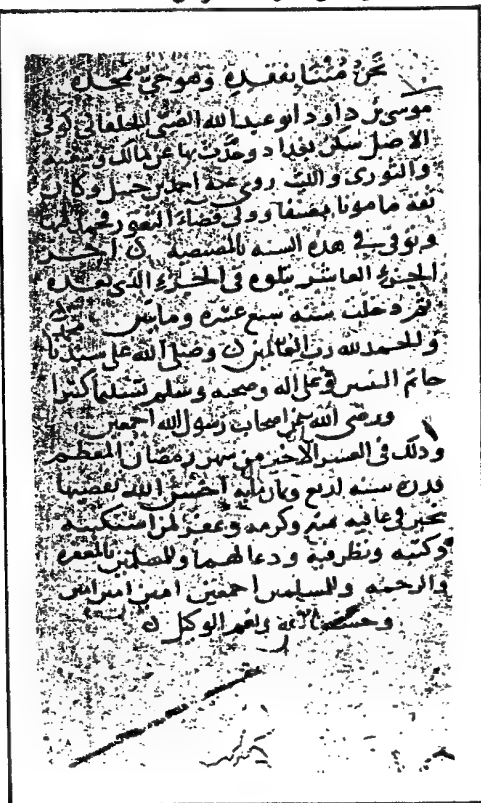 نحن متنا بفقده وهو حي بمجده
موسى بن داود ابو عبد الله الضبي الخلقاني كوفي
الاصل سكن بغداد وحدث بها عن مالك وشعبة
والثوري والليث روى عنه احمد بن حنبل وكان
ثقة مامونا مصنفا وولي قضاء الثغور فحمد فيها
وتوفي في هذه السنه بالمصيصه اخر
الجزء العاشر يتلوه في الجزء الذي بعده
ثم دخلت سنه سبع عشره ومايتين
والحمد لله رب العالمين وصلى الله على سيدنا
خاتم النبيين وعلى اله وصحبه وسلم تسليما كثيرا
ورضى الله عن اصحاب رسول الله اجمعين
وذلك في العشر الاخير من شهر رمضان المعظم
قدره سنه اربع وثمان مايه احسن الله تقضيها
بخير في عافيه بمنه وكرمه وغفر لمن استكتبه
وكتبه ونظر فيه ودعا لهما وللمسلمين بالمغفره
والرحمه وللمسلمين اجمعين امين امين امين
وحسبنا الله ونعم الوكيل